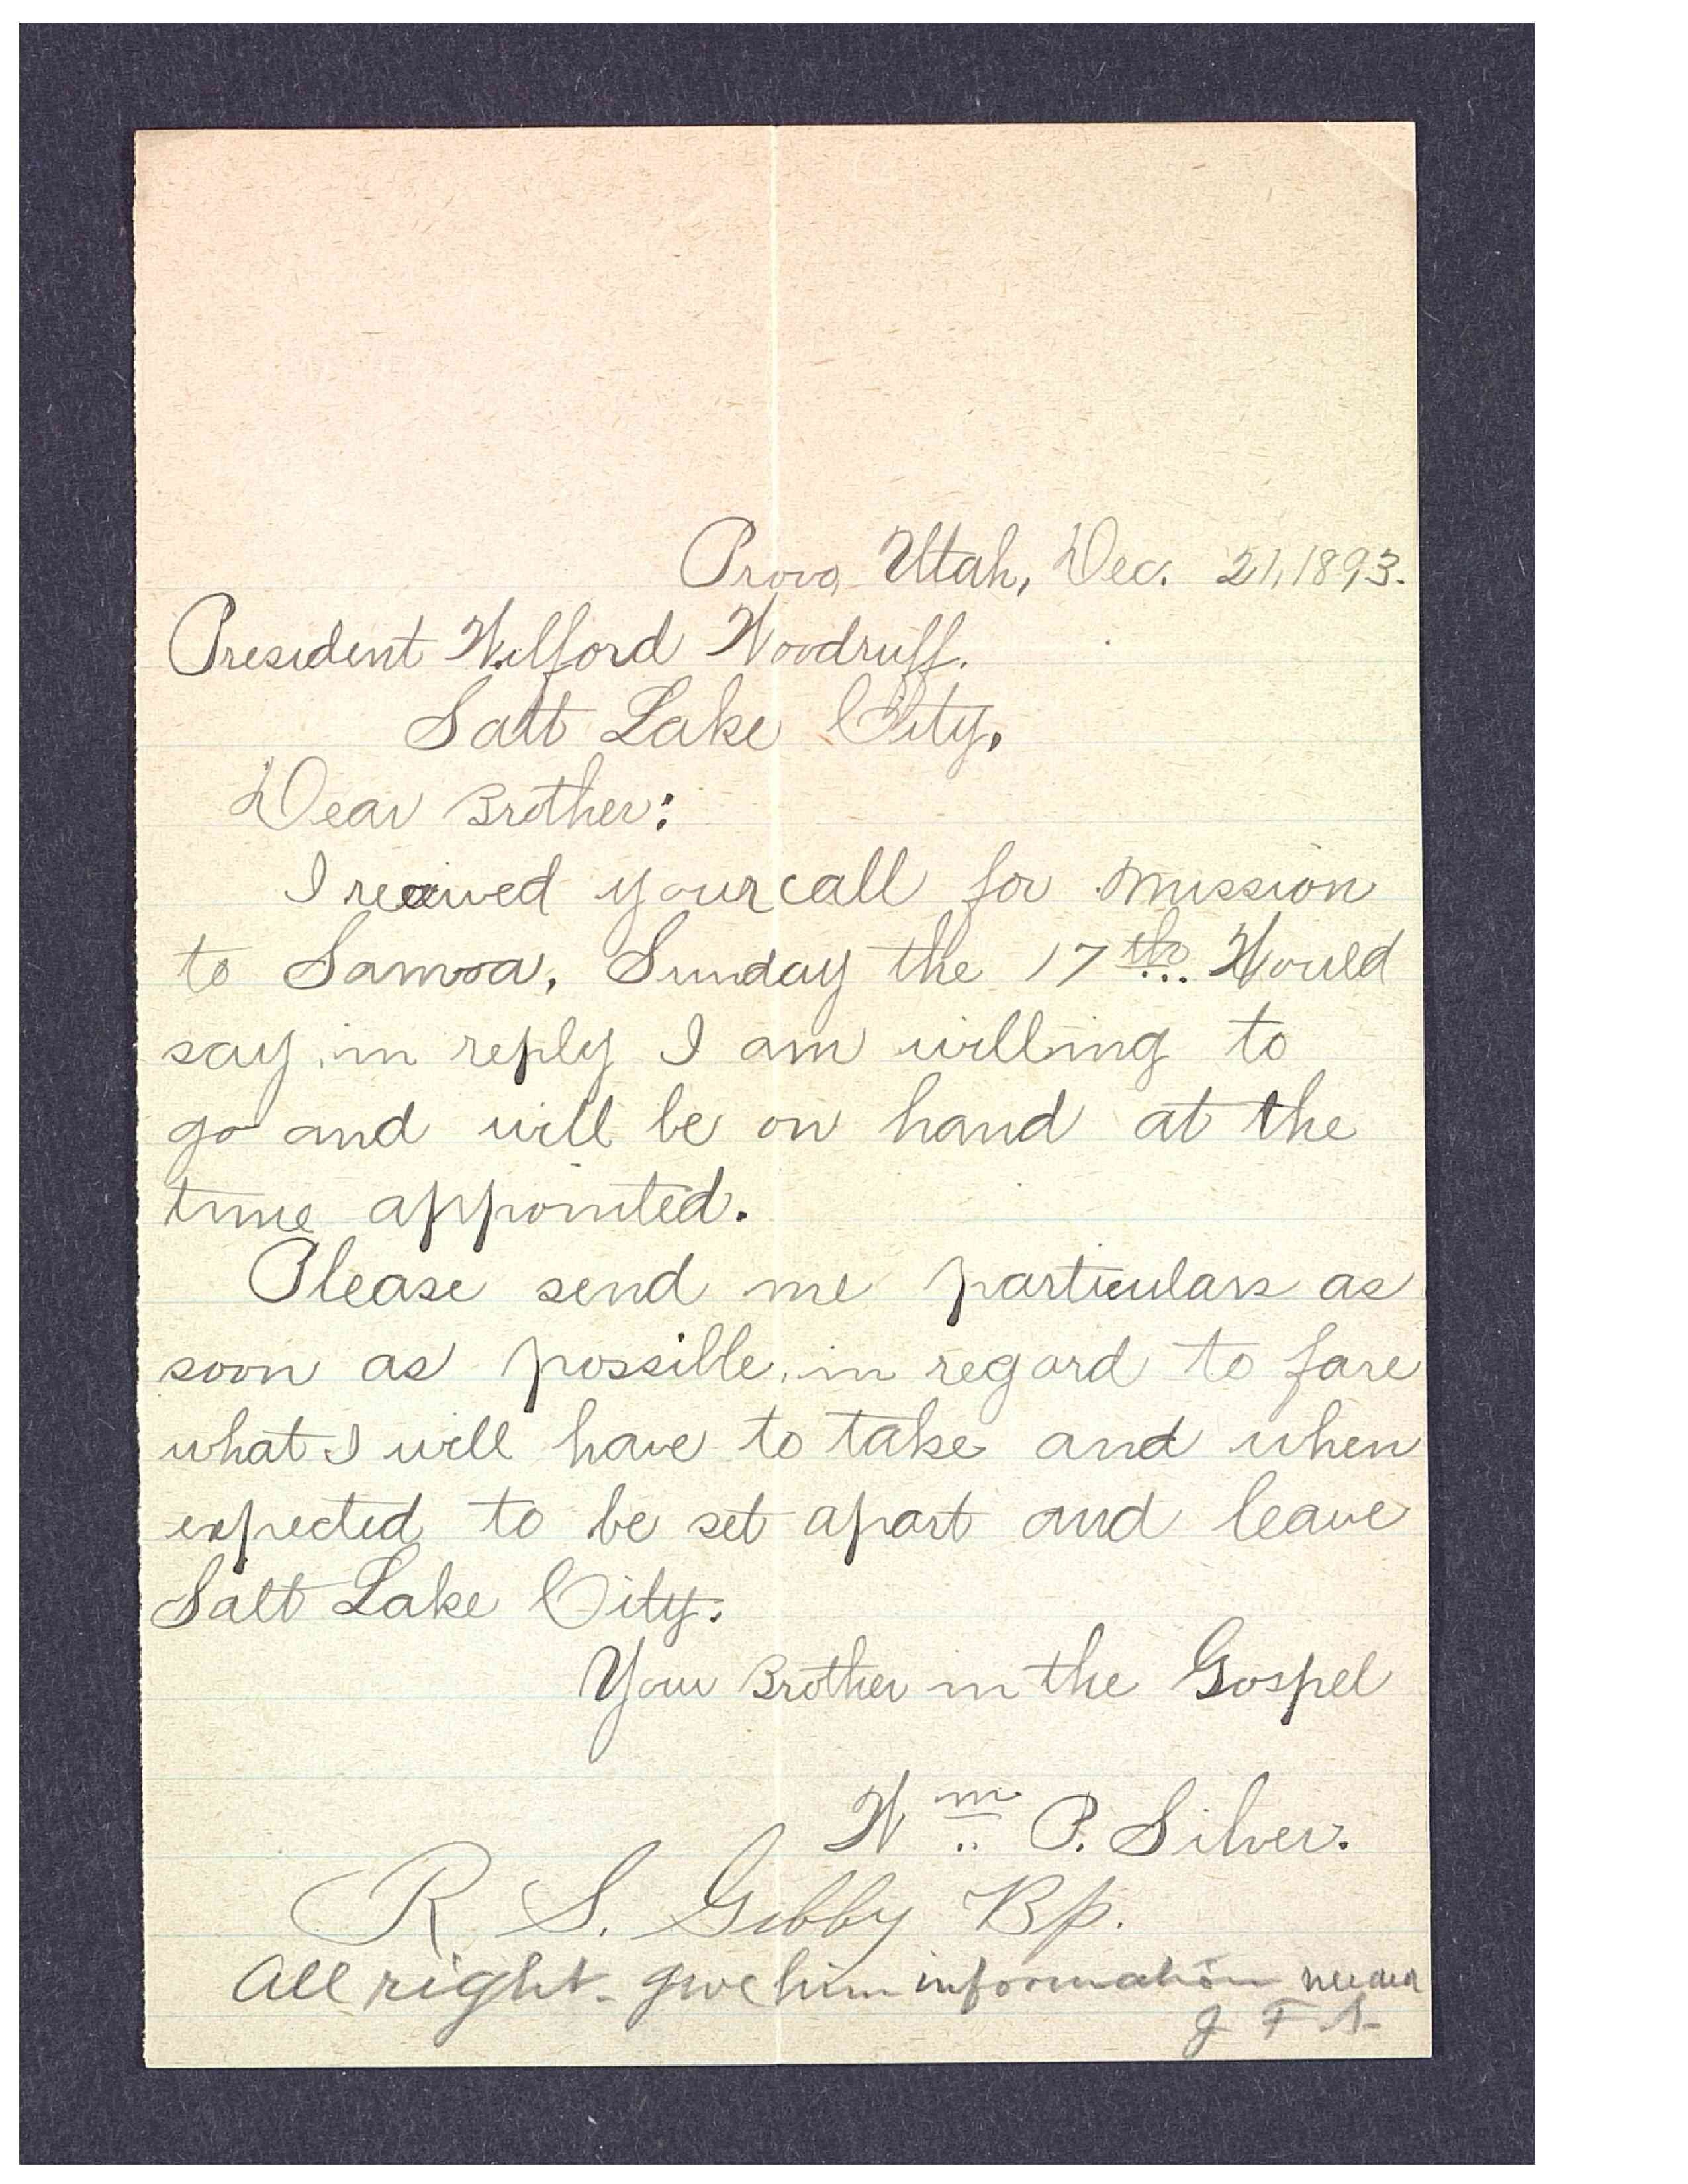 Provo, Utah, Dec. 21, 1893.
President Wilford Woodruff.
Salt Lake City,
Dear Brother:
I received your call for mission
to Samoa, Sunday the 17th. Would
say in reply I am willing to
go and will be on hand at the
time appointed.
Please send me particulars as
soon as possible, in regard to fare
what I will have to take and when
expected to be set apart and leave
Salt Lake City.
Your Brother in the Gospel
Wm P. Silver.
R S. Gibby Bp.
All right - give him information needed
J F S-